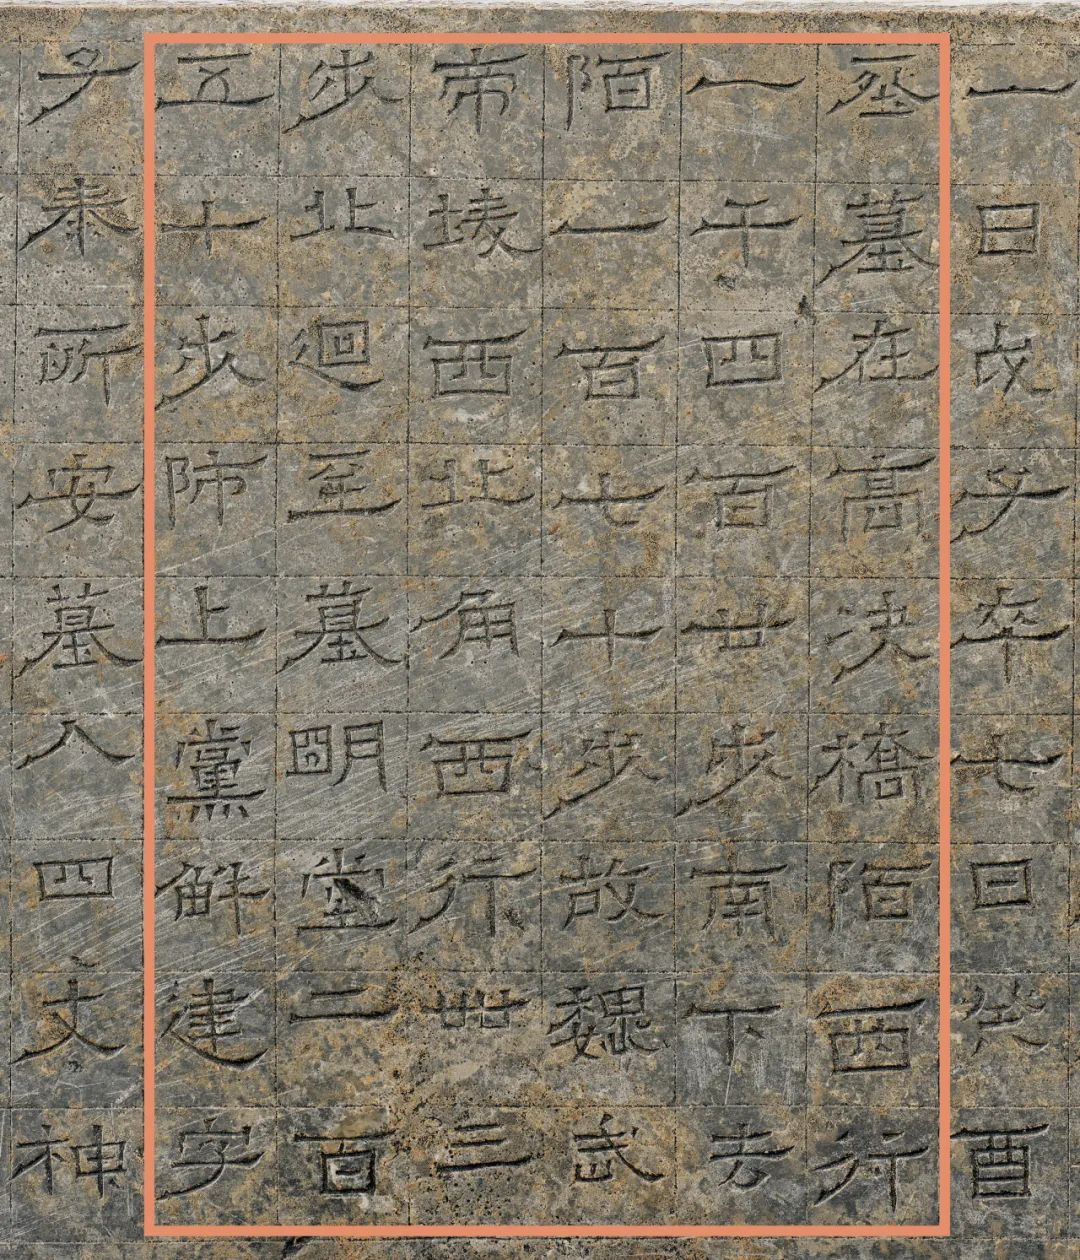 一日戊子卒七日癸酉
葬墓在高決橋陌西行
一千四百廿步南下去
陌一百七十步故魏武
帝陵西北角西行卌三
步北迴至墓明堂二百
五十步師上黨解建字
子泰所安墓入四丈神